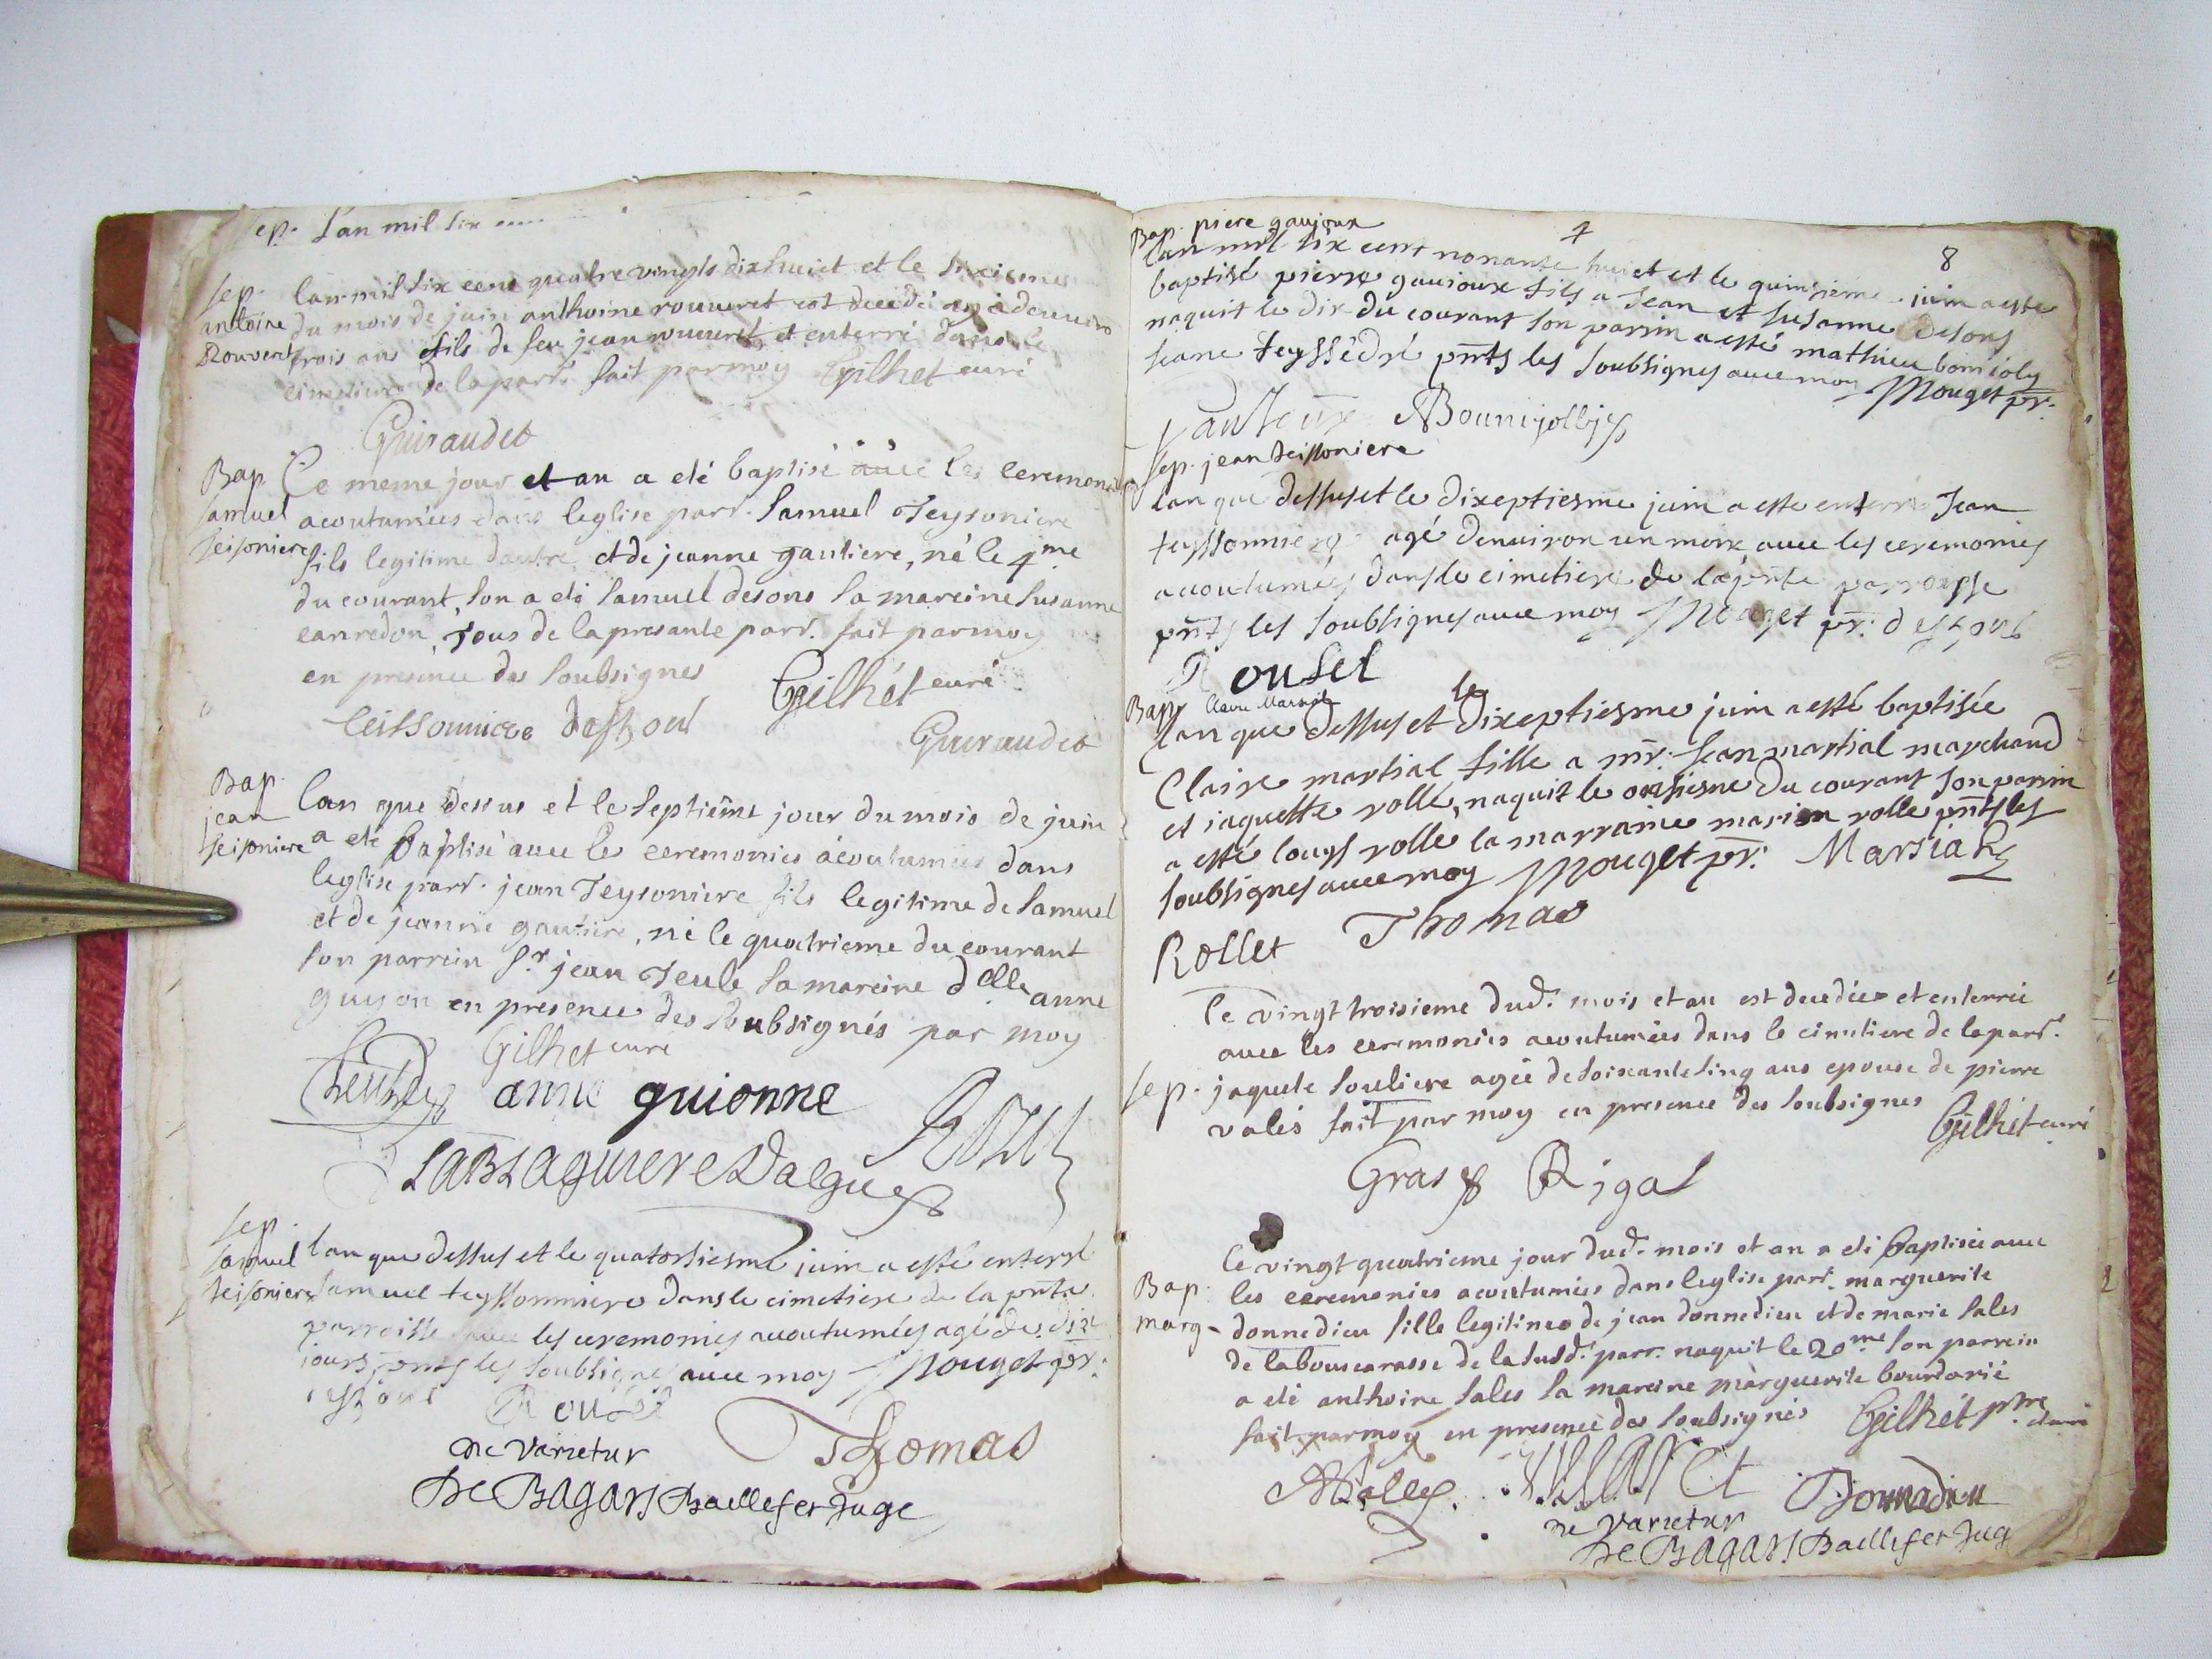 sep. L'an mil six
sep. lan mil six cens quatre vingts dix huict et le sixieme
antoine du mois de juin anthoine rouveret est decedé agé denviro
Rouveret trois ans fils de feu jean rouveret, et enterré dans le
cimetiere de la parr. fait par moy Gilhet curé
Guiraudet
Bap Ce meme jour et an a eté baptisé avec les ceremonies
samuel acoutumées dans leglise parr. Samuel Teysoniere
teisoniere fils legitime dautre et de jeanne gautiere, né le 4me
du courant, son a eté Samuel desons la mareine susanne
canredon, Tous de la presante parr. fait par moy
en presence des soubsignes Gilhét curé
teissoniere destout
Guiraudet
Bap. lan que dessus et le septiême jour du mois de juin
jean
teisoniere a eté Baptisé avec les ceremonies acoutumées dans
leglise parr. jean Teysoniere fils legitime de Samuel
et de jeanne gautiere, né le quatrieme du courant
son parrein Sr. jean Teule sa mareine delle anne
guyon en presence des soubsignés par moy
Gilhet curé
anne guionne
sep.
samuel lan que dessus et le quatorsiesme juin a esté enterré
teisoniere samuel teyssonniere dans le cimetiere de la pnte
parroisse avec les ceremonies acoutumées agé de dix
jours, pnts les soubsignes avec moy Mouget pr.
Rousel
Thomas
Ne varietur
De Bagars Baillifer Juge
Bap. piere gaujoux
4
8
lan mil six cent nonante huict et le quinsieme juin a esté
baptisé pierre gaujoux fils a Jean et susanne desons
naquit le dix du courant son parrin a esté mathieu bonijoly
jeane teyssédré pnts les soubsignes avec moy Mouget pr.
Bounijollÿ
sep. jean teissoniere
lan que dessus et le dixseptiesme juin a esté enterré Jean
teyssonniere agé denviron un mois avec les ceremonies
acoutumées dans le cimetiere de la pnte parroisse
pnts les soubsignes avec moy Mouget pr. destout
Rousel
Bap. Claire Marsial
lan que dessus et le dixseptiesme juin a esté baptisée
Claire martial fille a mr. Jean martial marchand
et jaquette rolle, naquit le onzhiesme du courant son parrin
a esté louys rolle la marraine marion rolle pnts les
soubsignes avec moy Mouget pr. Marsial
Rollet Thomas
le vingt troisieme dud. mois et an est decedée et enterrée
avec les ceremonies acoutumées dans le cimetiere de la parr.
sep. jaquete souliere agée de soixante sinq ans epouse de pierre
valés fait par moy en presence des soubsignes Gilhét curé
Gras Rigal
le vingt quatrieme jour dud. mois et an a eté Baptisée avec
Bap. les ceremonies acoutumées dans leglise parr. marguerite
marg- donnedieu fille legitime de jean donnedieu et de marie sales
de labouscarasse de la susd. parr. naquit le 20me son parrein
a eté anthoine sales la mareine marguerite bourdarié
fait par moy en presence des soubsignés Gilhét ptre curé
Donnadieu
Ne varietur
De Bagars Baillifer Jug